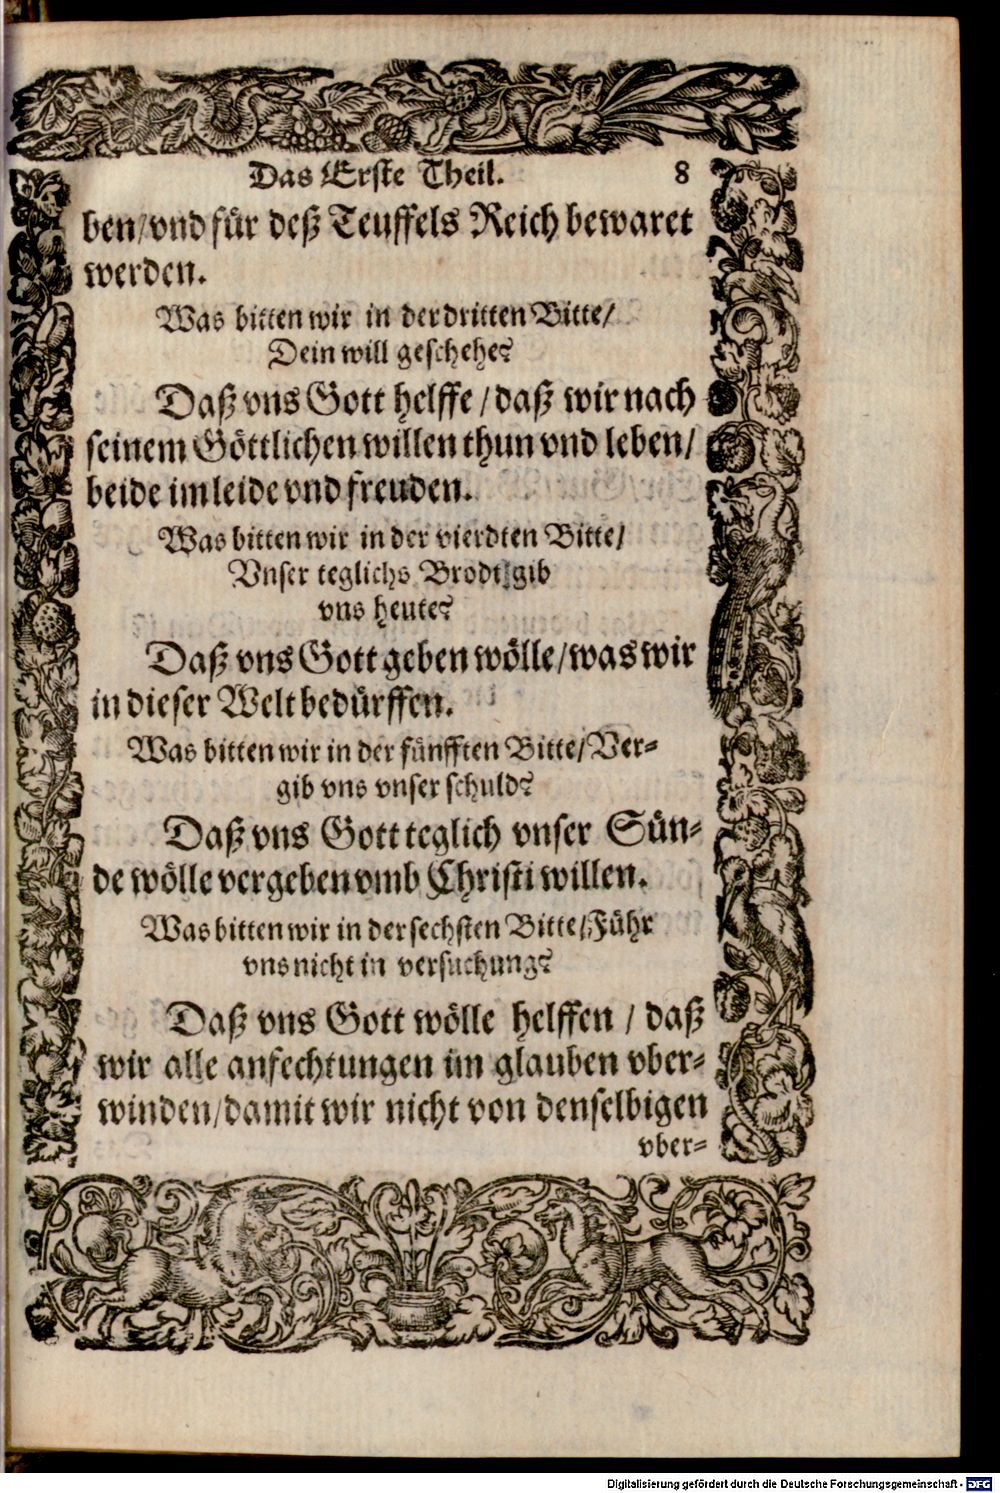 Das Erste Theil. 8
ben/vnd für deß Teuffels Reich bewaret
werden.
Was bitten wir in der dritten Bitte/
Dein will geschehe?
Daß vns Gott helffe/daß wir nach
seinem Göttlichen willen thun vnd leben/
beide im leide vnd freuden.
Was bitten wir in der vierdten Bitte/
Vnser teglichs Brodt gib
vns heute?
Daß vns Gott geben wölle/was wir
in dieser Welt bedürffen.
Was bitten wir in der fünfften Bitte/Ver-
gib vns vnser schuld?
Daß vns Gott teglich vnser Sün-
de wölle vergeben vmb Christi willen.
Was bitten wir in der sechsten Bitte/Führ
vns nicht in versuchung?
Daß vns Gott wölle helffen/daß
wir alle anfechtungen im glauben vber-
winden/damit wir nicht von denselbigen
vber-
Digitalisierung gefördert durch die Deutsche Forschungsgemeinschaft - DFG